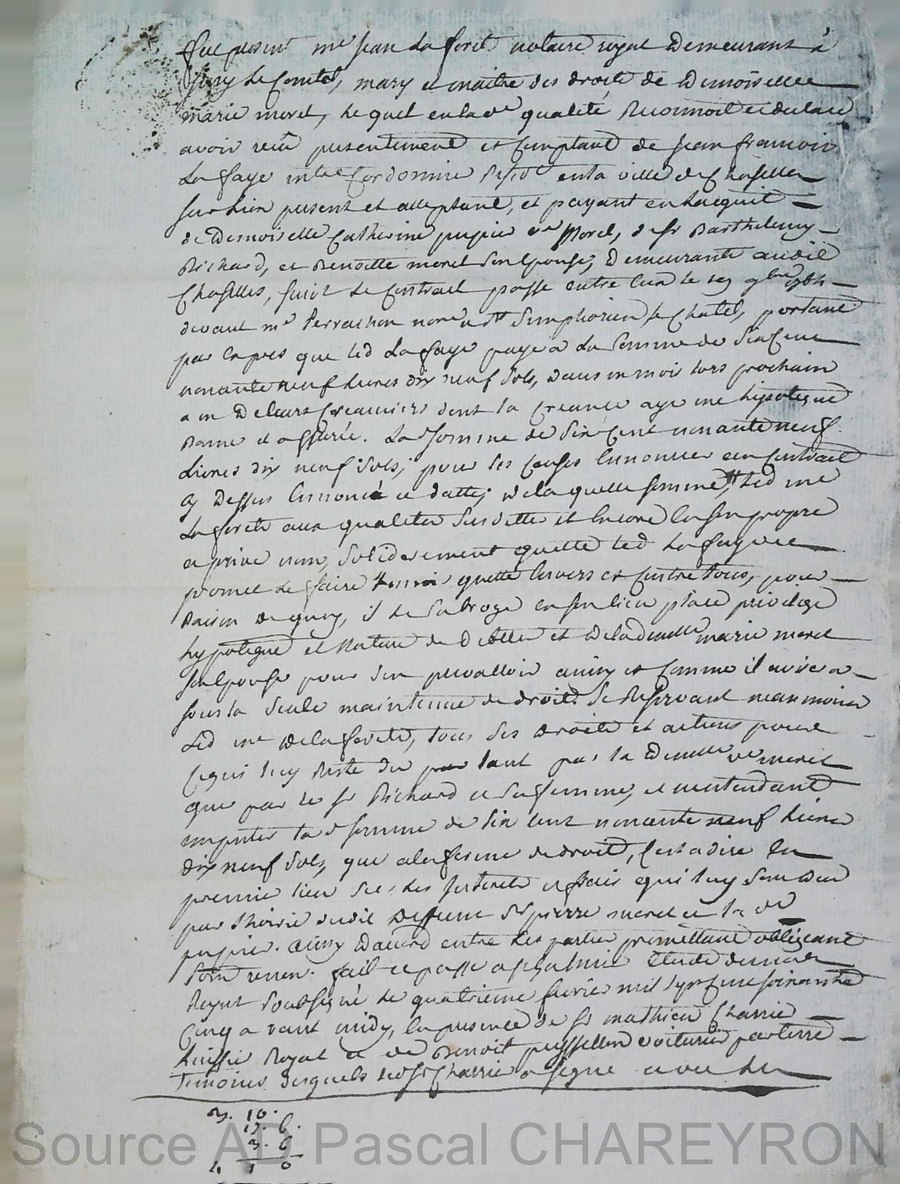 fut present me Jean La forêt notaire royal demeurant à
Sury Le Comtal, mary et maitre des droits de Demoiselle
marie morel, Lequel en la de qualité Reconnoit et declare
avoir reçû presentement et comptant de Jean francois
La faye me Cordonnier en la ville de Chaselles
sur Lion present et acceptant, et payant en Lacquit
de Demoiselle Catherine pupier ve Morel, de Sr Barthelemy
Richard, et Benoitte morel son Epouse, demeurants audit
Chaselles, suivt Le Contrait passé entre eux le
devant me not à St Simphorien Le Chatel, portant
par exprès que led La faye payera La somme de Six Cent
nonante neuf Livres dix neuf sols, dans un mois lors prochain
a un de leurs Creanciers dont la Creance aye une hipoteque
Bonne et assurée. La d somme de Six Cent nonante neuf
Livres dix neuf sols, pour les Causes Ennoncées au Contrait
Cy Dessus Ennoncé et datté, de la quelle somme, Led me
La forêt aux qualités Susdittes et Encore En son propre
et privé nom, Solidairement quitte led La faye et
promet Le faire tenir quitte Envers et Contre tous, pour
Raison de quoy, il Le Subroge en son lieu place privilege
hypoteque et Nature de Debtes et de la demelle marie morel
son Epouse pour s'en prevalloir ainsy et Comme il avisera
sous la Seule maintenue de droit. Se Reservant neanmoins
Led me De la forêt, tous Ses Droits et actions pour
Ce qui luy Reste du tant par la Demelle ve morel
que par le Sr Richard et Sa femme, et n'entendant
imputer la d somme de Six Cent nonante neuf Livres
dix neuf Sols, que a la forme de droit, C'est a dire En
premier lieu Sur les Interets et frais qui luy Sont Dus
par L'hoirie dudit Deffunt Sr pierre morel et la ve
pupier. ainsy D'accord entre Les parties promettant obligeant
Soum renon. fait et passé Etude du notre
Royal Soussigné Le quatrieme fevrier mil sept Cent soixante
Cinq avant midy, En presence de Sr mathieu Charrié
huissier Royal et de Benoit voiturier par terre
Temoins, desquels led Sr Charrié a signé avec Le
3. 10.
17. 6.
3. 6
4. 1 0
Source AD Pascal CHAREYRON